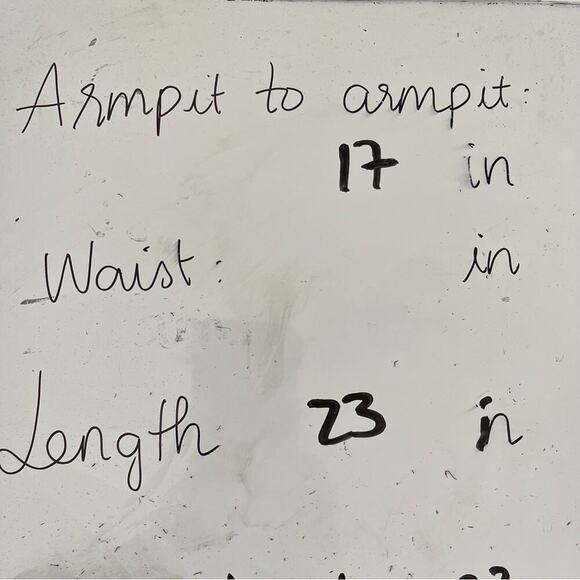 Armpit to armpit:
17 in
Waist: in
Length 23 in